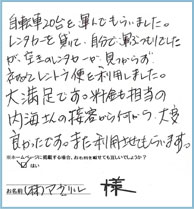 自転車20台を運んでもらいました。
レンタカーを貸りて、自分で運ぶつもりでした
が、空きのレンタカーが見つからず、
初めてレントラ便を利用しました。
大満足です。料金も担当の
内海さんの接客から何から、大変
良かったです。また利用させてもらいます。
※ホームページに掲載する場合、お名前を載せても宜しいでしょうか?
はい
お名前 (株)アガリル 様